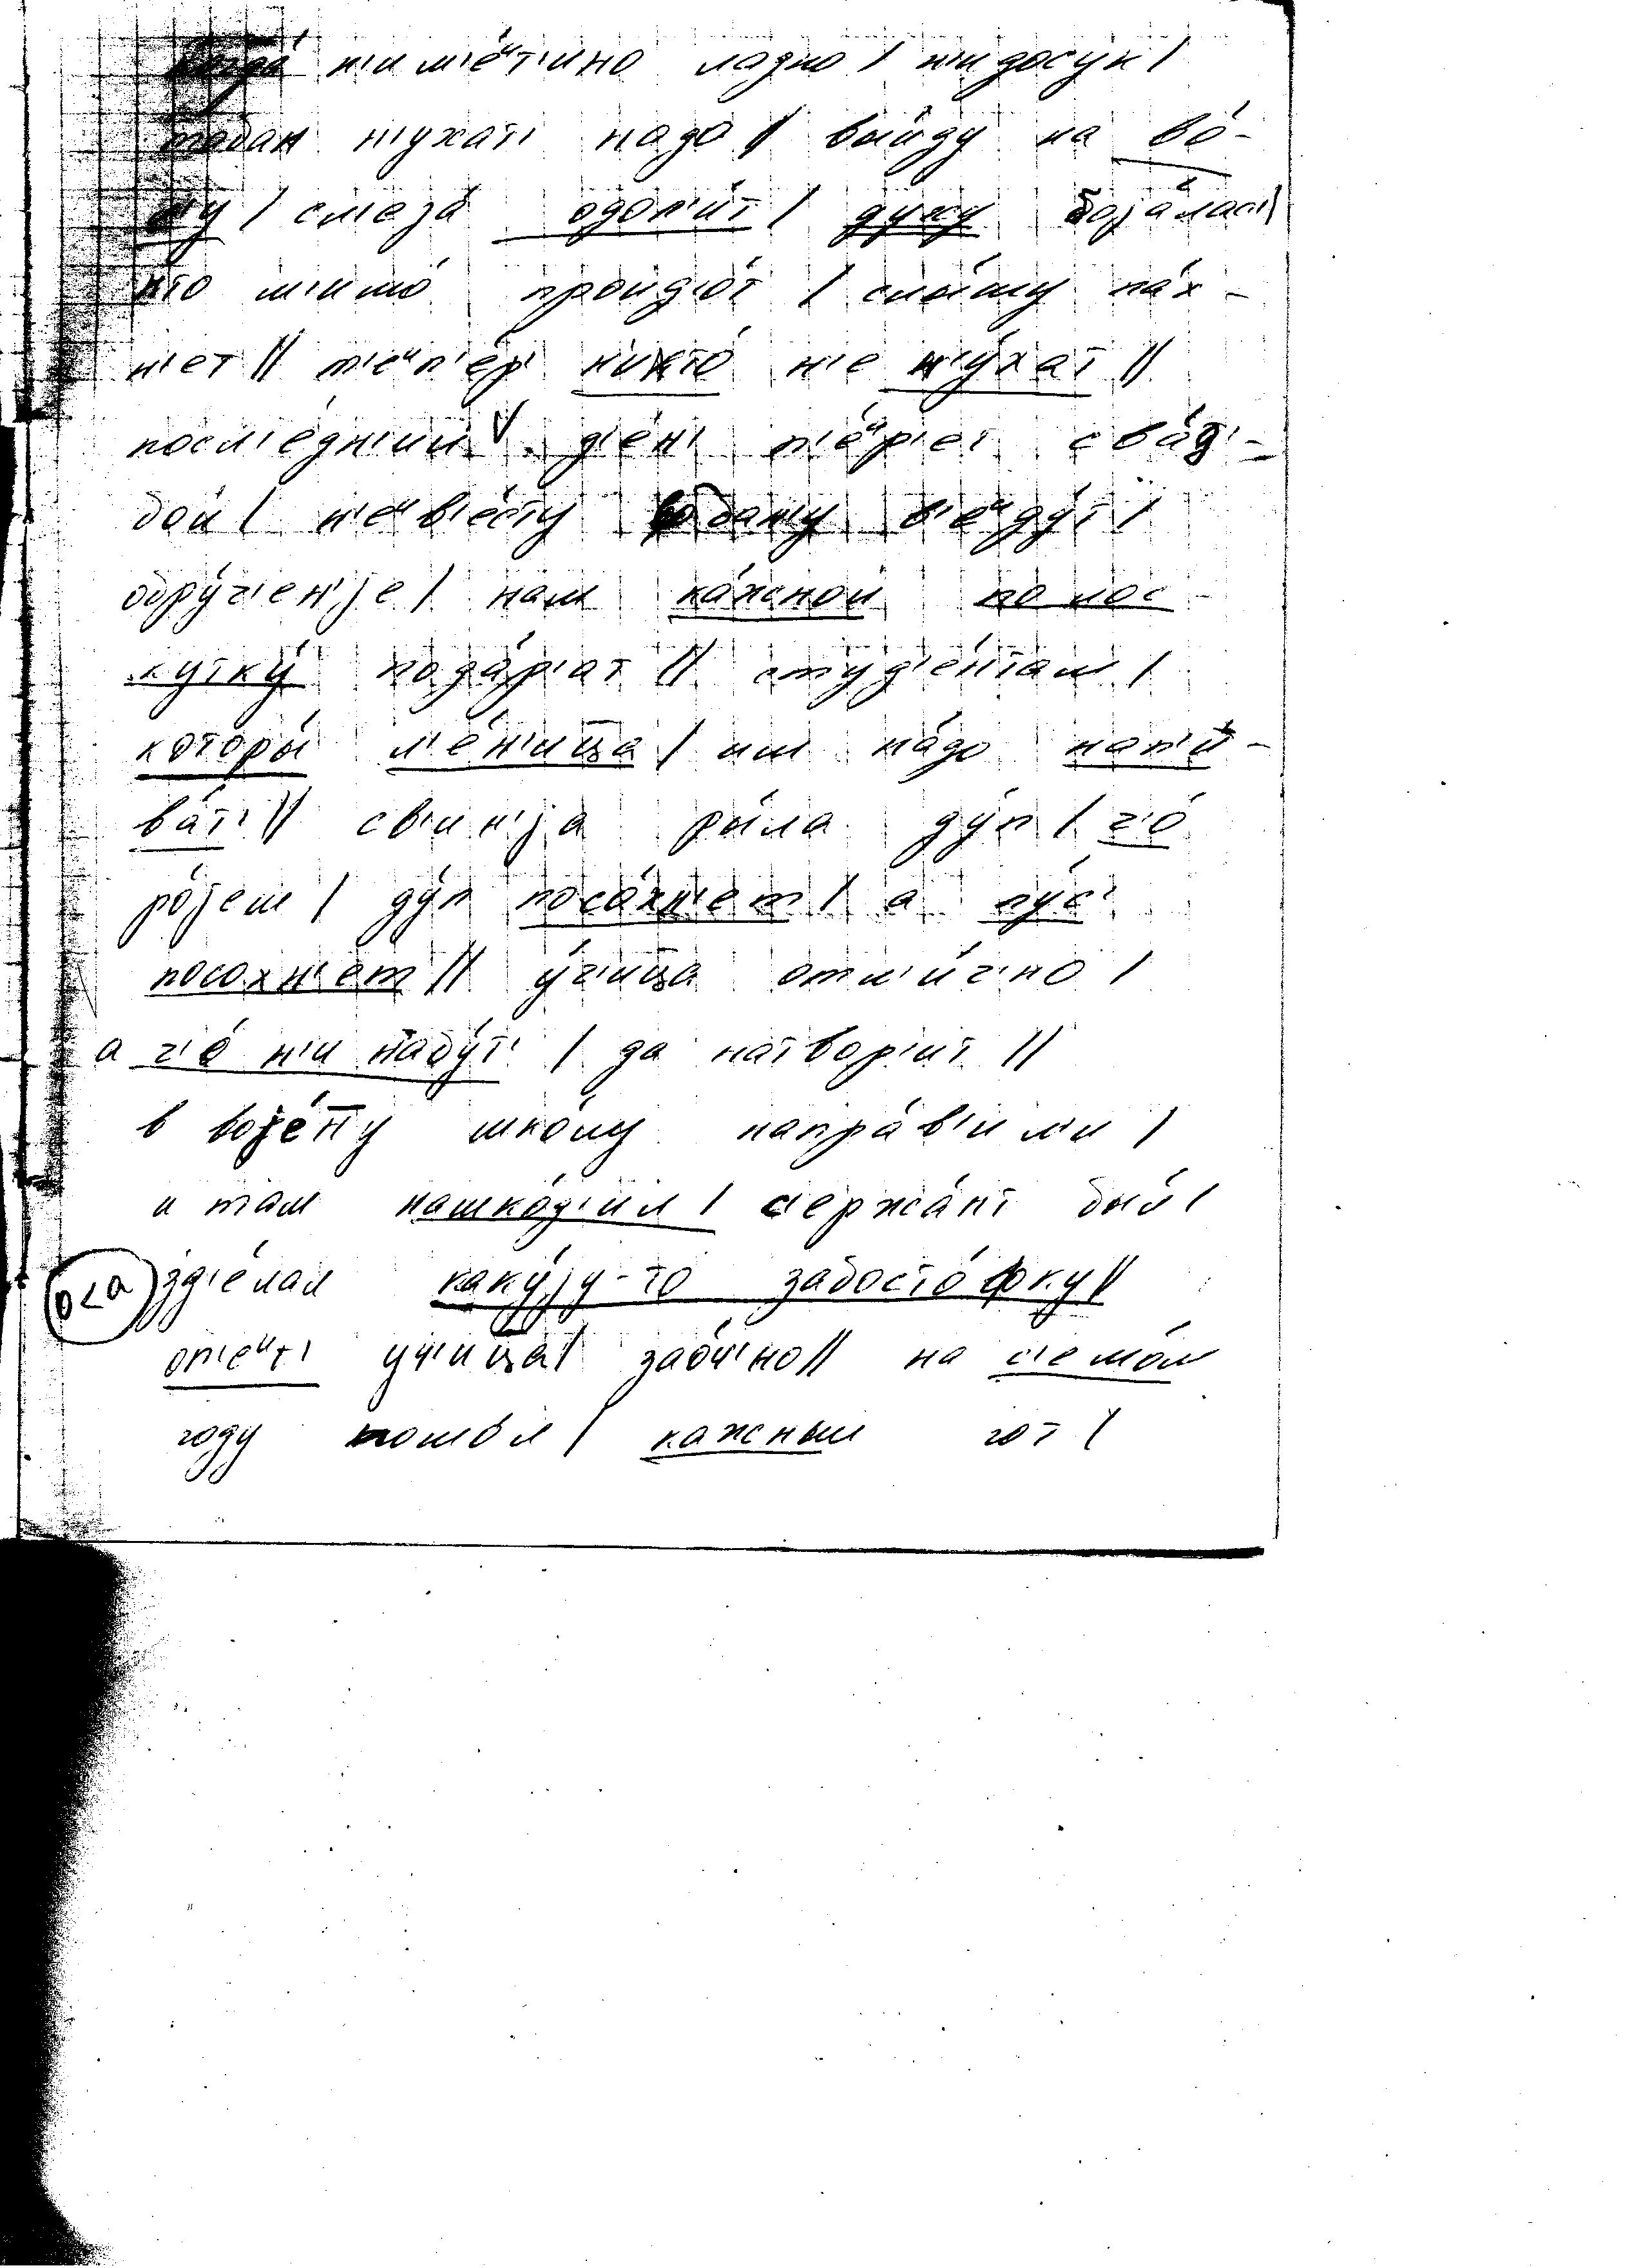 когда́ н'им'е́ᵘт'ино ладно / н'идосук /
табак н'ухат' надо // выйду на во́-
л'у / сл'еза́ одол'и́т / духу боjа́лас' /
кто м'имо́ проид'о́т / слы́шу па́х-
н'ет // т'еᵘп'е́р' н'икто́ н'е н'у́хат //
посл'е́дн'ий д'ен' п'е́ᵘр'ет сва́д'-
бой / н'еᵘв'е́сту в ба́н'у в'еᵘду́т /
обру́ч'ен'jе / нам ка́жной по лос-
кутку́ пода́р'ат // студ'е́нтам /
которы́ л'е́н'ица / им на́до нап'и-
ва́т' // св'ин'jа ры́ла ду́п / ч'о́
ро́jеш / ду́п посо́хн'ет / а пус'
посохн'ет // у́ч'ица отл'и́ч'но /
а ч'о́ н'и набу́т' / да натвор'ит //
в воjе́ну шко́лу напра́в'ил'и /
и там нашко́д'ил / с'ержа́нт бы́л /
зд'е́лал каку́jу-то забасто́фку //
оп'еᵘт' у́ч'ица / зао́ч'но // на с'емо́м
году пошо́л / кажный гот /
о<а